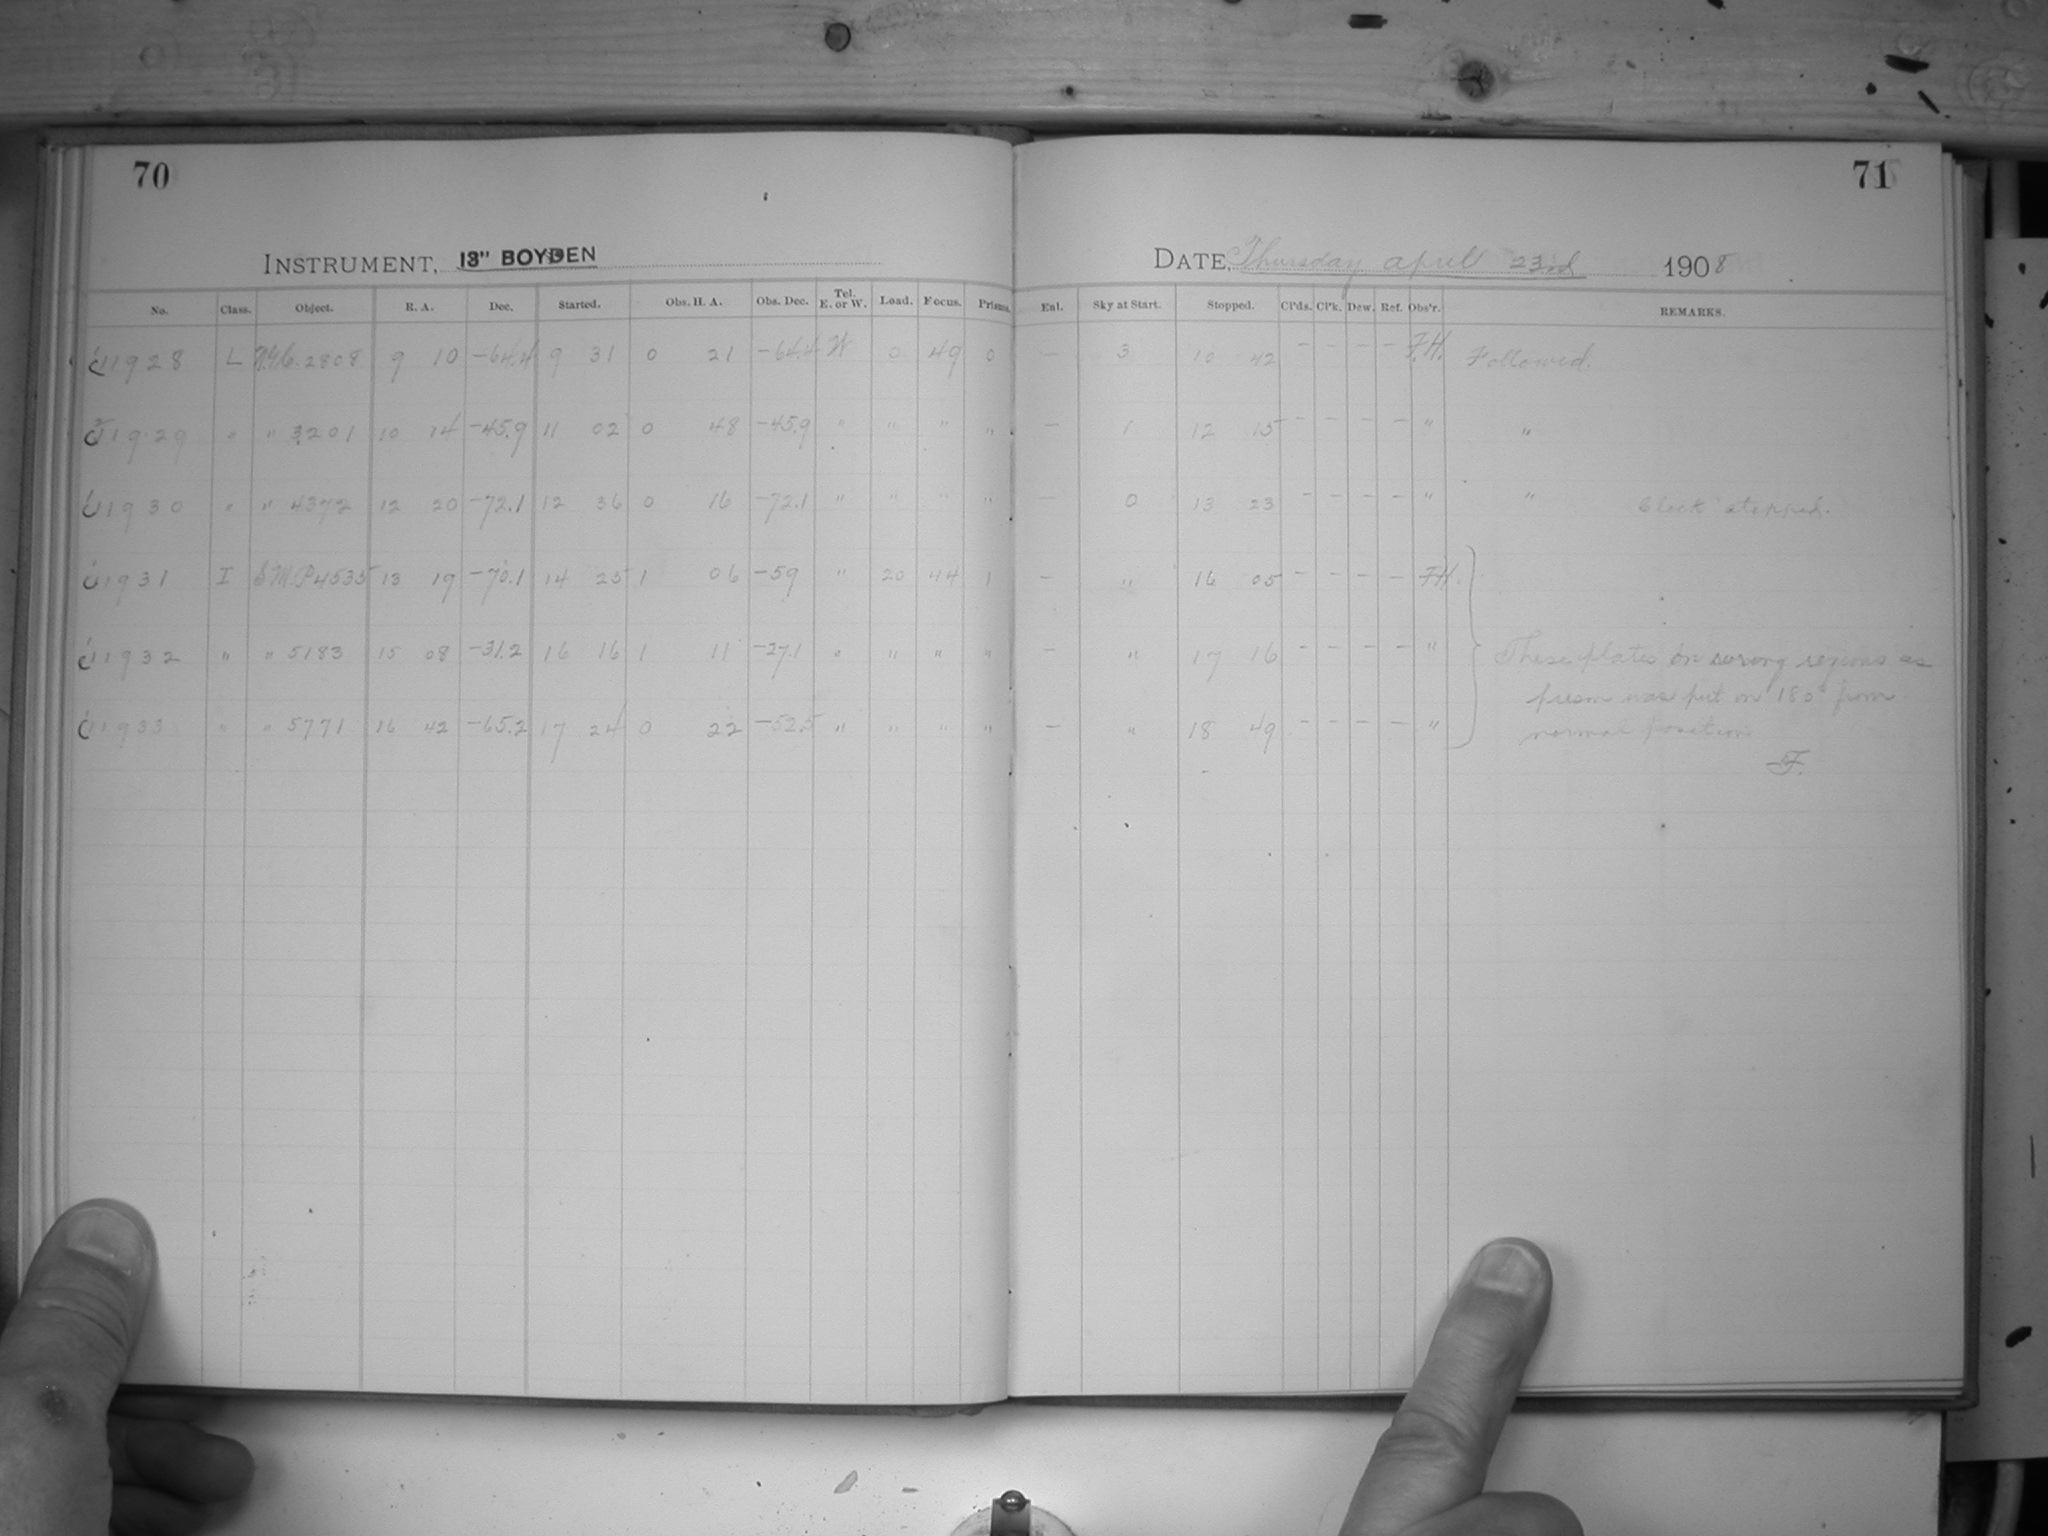 70
INSTRUMENT, 13" BOYDEN
No. Class. Object. R. A. Dec. Started. Obs. H. A. Obs. Dec. Tel. E. or W. Load. Focus. Prisms.
11928 L N.G.C. 2808 9 10 -64.4 9 31 0 21 -64.4 W 0 49 0
11929 " " 3201 10 14 -45.9 11 02 0 48 -45.9 " " " "
11930 " " 4372 12 20 -72.1 12 36 0 16 -72.1 " " " "
11931 I S.M.P. 4535 13 19 -70.1 14 25 1 06 -59 " 20 44 1
11932 " " 5183 15 08 -31.2 16 16 1 11 -27.1 " " " "
11933 " " 5771 16 42 -65.2 17 24 0 22 -52.5 " " " "
71
DATE, Thursday april 23rd 1908
Enl. Sky at Start. Stopped. Cl'ds. Cl'k. Dew. Ref. Obs'r. REMARKS.
— 3 10 42 – – – – F.H. Followed.
— 1 12 15 – – – – " "
— 0 13 23 – – – – " " Clock stopped.
— " 16 05 – – – – F.H.
— " 17 16 – – – – " These plates on wrong regions as
prism was put on 180° from
— " 18 49 – – – – " normal position
F.